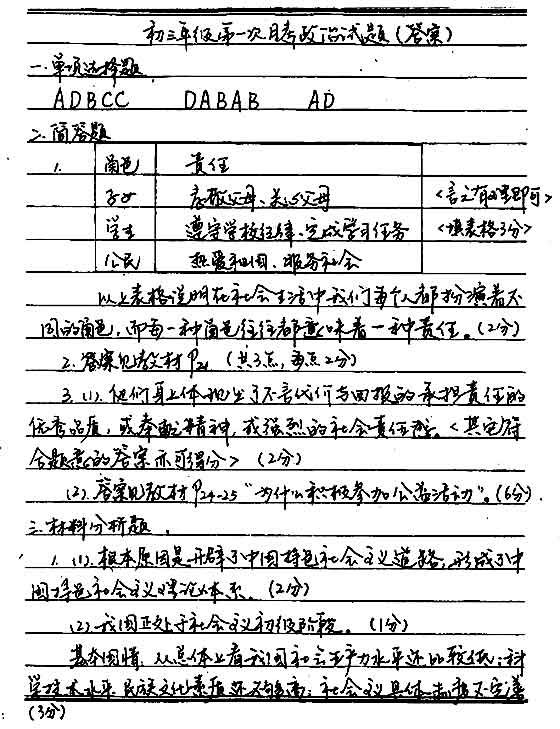 初三年级第一次月考政治试题(答案)
一.单项选择题
ADBCC DABAB AD
二.简答题
1. 角色 责任
子女 孝敬父母、关心父母 <言之有理即可>
学生 遵守学校纪律、完成学习任务 <填表格3分>
公民 热爱祖国、服务社会
以上表格说明在社会生活中我们每个人都扮演着不
同的角色,而每一种角色往往都意味着一种责任。(2分)
2. 答案见教材P21 (共3点,每点2分)
3. (1). 他们身上体现出了不言代价与回报的承担责任的
优秀品质,或奉献精神,或强烈的社会责任感。<其它符
合题意的答案亦可得分> (2分)
(2). 答案见教材P24-25 "为什么积极参加公益活动"。(6分)
三.材料分析题.
1. (1). 根本原因是开辟了中国特色社会主义道路,形成了中
国特色社会主义理论体系。(2分)
(2). 我国正处于社会主义初级阶段。(1分)
基本国情:从总体上看我们国社会生产力水平还比较低;科
学技术水平、民族文化素质还不够高;社会主义具体制度不完善
(3分)